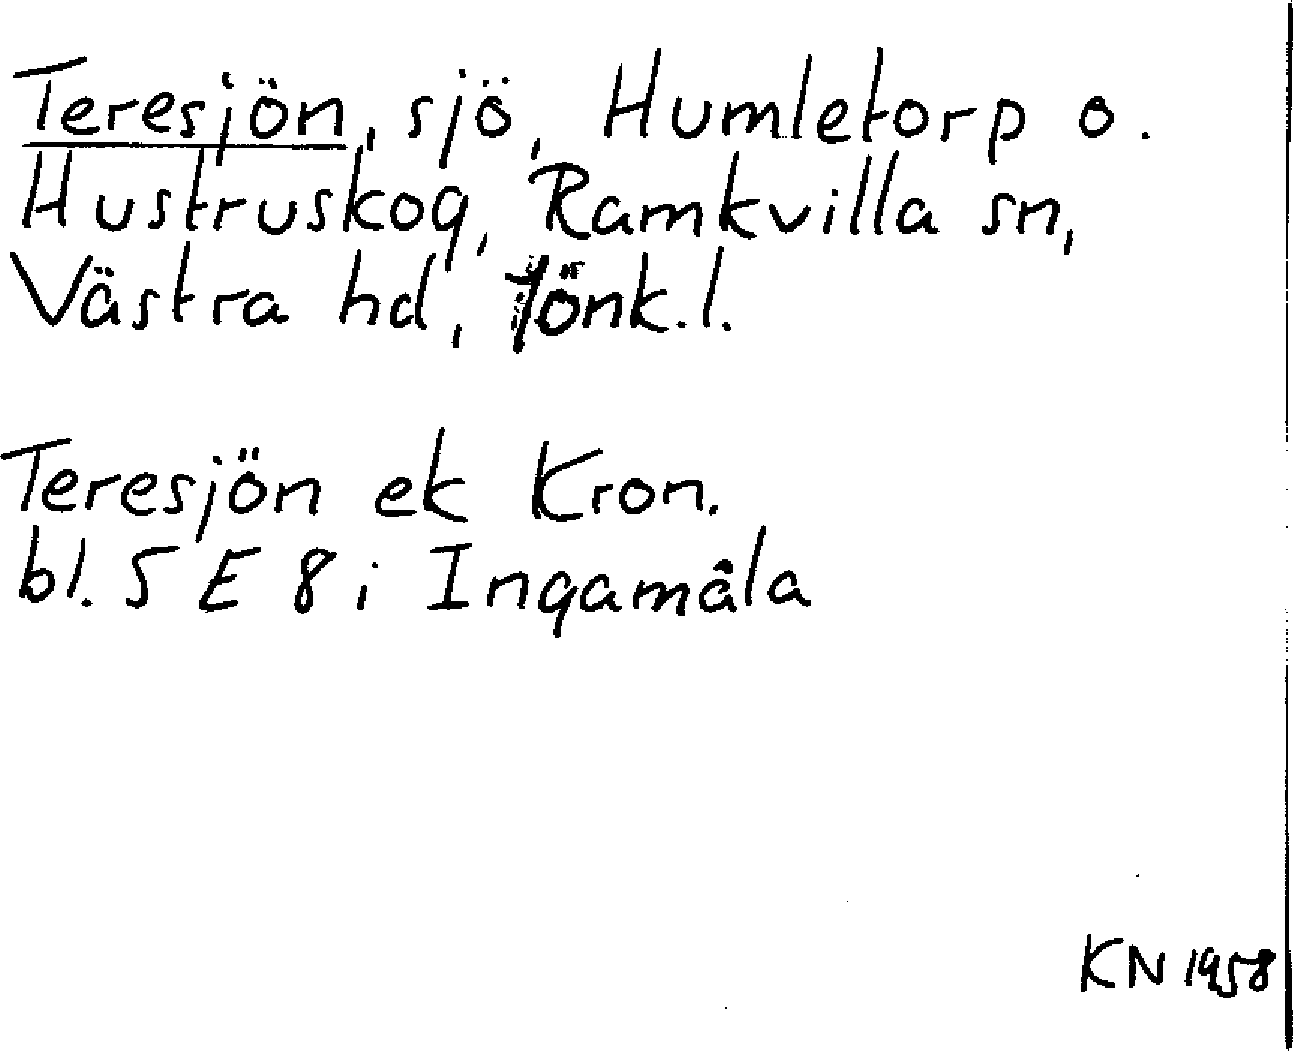 Teresjön, sjö, Humletorp o.
Hustruskog, Ramkvilla sn,
Västra hd, Jönk.l.
Teresjön ek Kron.
bl. 5 E 8 i Ingamåla
KN 1958